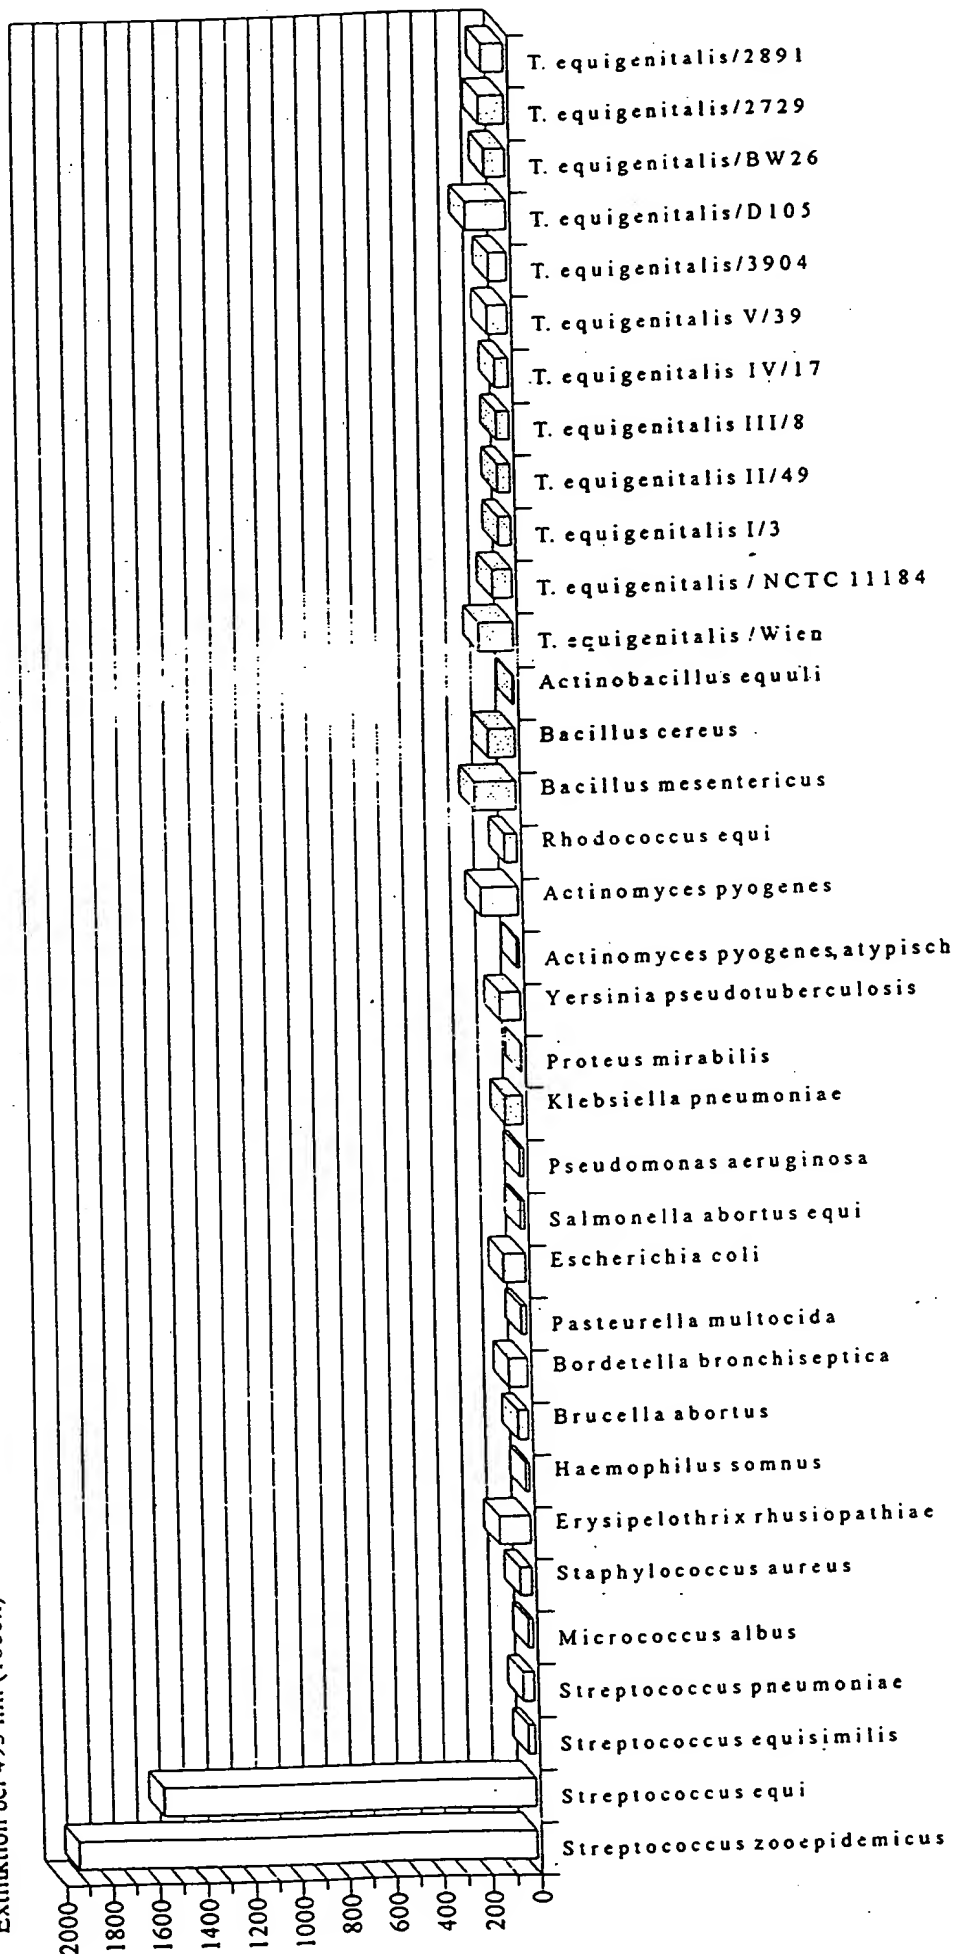 T. equigenitalis/2891
T. equigenitalis/2729
T. equigenitalis/BW26
T. equigenitalis/D105
T. equigenitalis/3904
T. equigenitalis V/39
T. equigenitalis IV/17
T. equigenitalis III/8
T. equigenitalis II/49
T. equigenitalis I/3
T. equigenitalis / NCTC 11184
T. equigenitalis /Wien
Actinobacillus equuli
Bacillus cereus
Bacillus mesentericus
Rhodococcus equi
Actinomyces pyogenes
Actinomyces pyogenes, atypisch
Yersinia pseudotuberculosis
Proteus mirabilis
Klebsiella pneumoniae
Pseudomonas aeruginosa
Salmonella abortus equi
Escherichia coli
Pasteurella multocida
Bordetella bronchiseptica
Brucella abortus
Haemophilus somnus
Erysipelothrix rhusiopathiae
Staphylococcus aureus
Micrococcus albus
Streptococcus pneumoniae
Streptococcus equisimilis
Streptococcus equi
Streptococcus zooepidemicus
2000 1800 1600 1400 1200 1000 800 600 400 200 0